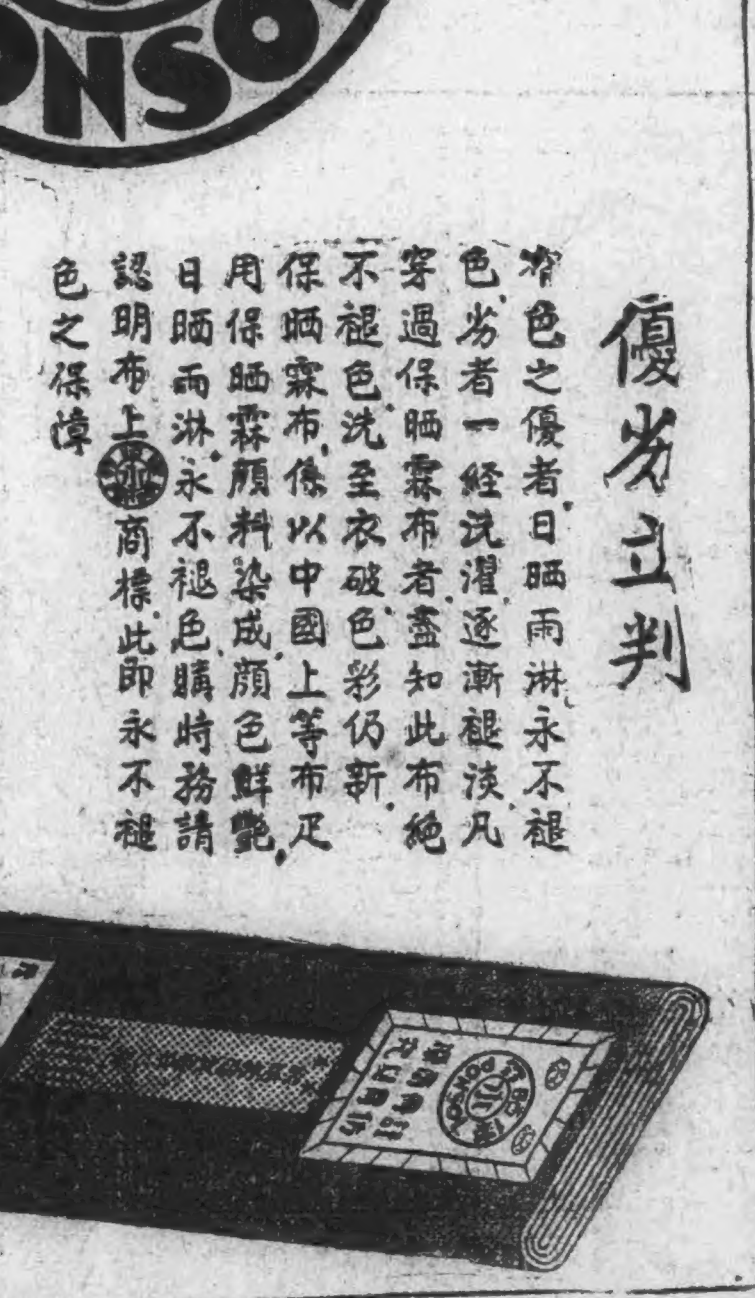 PONSO
優劣立判
色之優者、日晒雨淋、永不褪
色、劣者一經洗濯、逐漸褪淡、凡
穿過保晒霖布者、盡知此布絕
不褪色、洗至衣破、色彩仍新、
保晒霖布、係以中國上等布疋
用保晒霖顏料染成、顏色鮮艷、
日晒雨淋、永不褪色、購時務請
認明布上商標、此即永不褪
色之保障
PONSOL